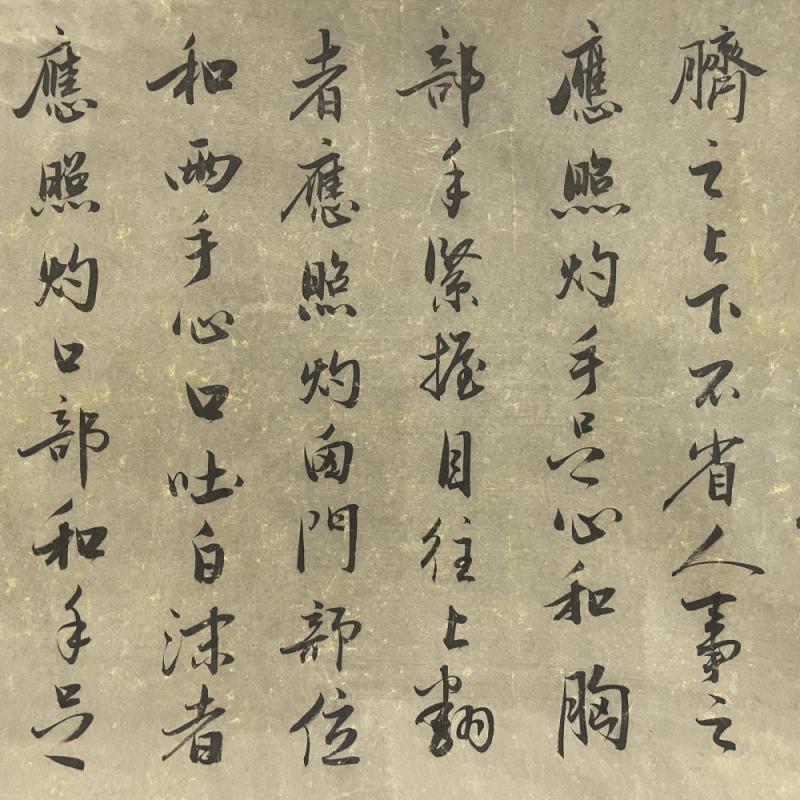 臍之上下不省人事之
應照灼手足心和胸
部手緊握目往上翻
者應照灼囟門部位
和兩手心口吐白沫者
應照灼口部和手足